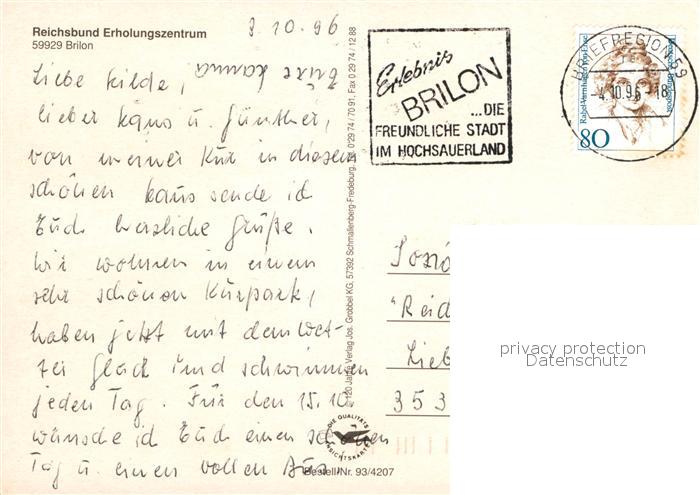 Reichsbund Erholungszentrum
59929 Brilon
3.10.96
Liebe Hilde,
lieber Hans u. Günther,
von meiner Kur in diesem
schönen Haus sende ich
Euch herzliche Grüße.
Wir wohnen in einem
sehr schönen Kurpark,
haben jetzt mit dem Wet-
ter Glück und schwimmen
jeden Tag. Für den 15.10.
wünsche ich Euch einen schönen
Tag u. einen vollen
Eure Hanna
120 Jahre Verlag Jos. Grobbel KG, 57392 Schmallenberg-Fredeburg, Tel. 0 29 74 / 70 91, Fax 0 29 74 / 12 88
Erlebnis
BRILON
...DIE
FREUNDLICHE STADT
IM HOCHSAUERLAND
BRIEFREGION 59
4.10.96-18
Rahel Varnhagen von Ense
80
"Reid
Lieb
353
DIE QUALITÄTS
ANSICHTSKARTE
Bestell-Nr. 93/4207
privacy protection
Datenschutz